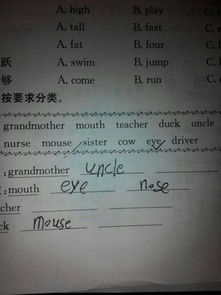 A. high B. play C.
A. tall B. fast C.
A. fat B. four C.
跃 A. swim B. jump C.
够 A. come B. run C.
按要求分类。
grandmother mouth teacher duck uncle
nurse mouse sister cow eye driver
: grandmother uncle
: mouth eye nose
cher
ck mouse